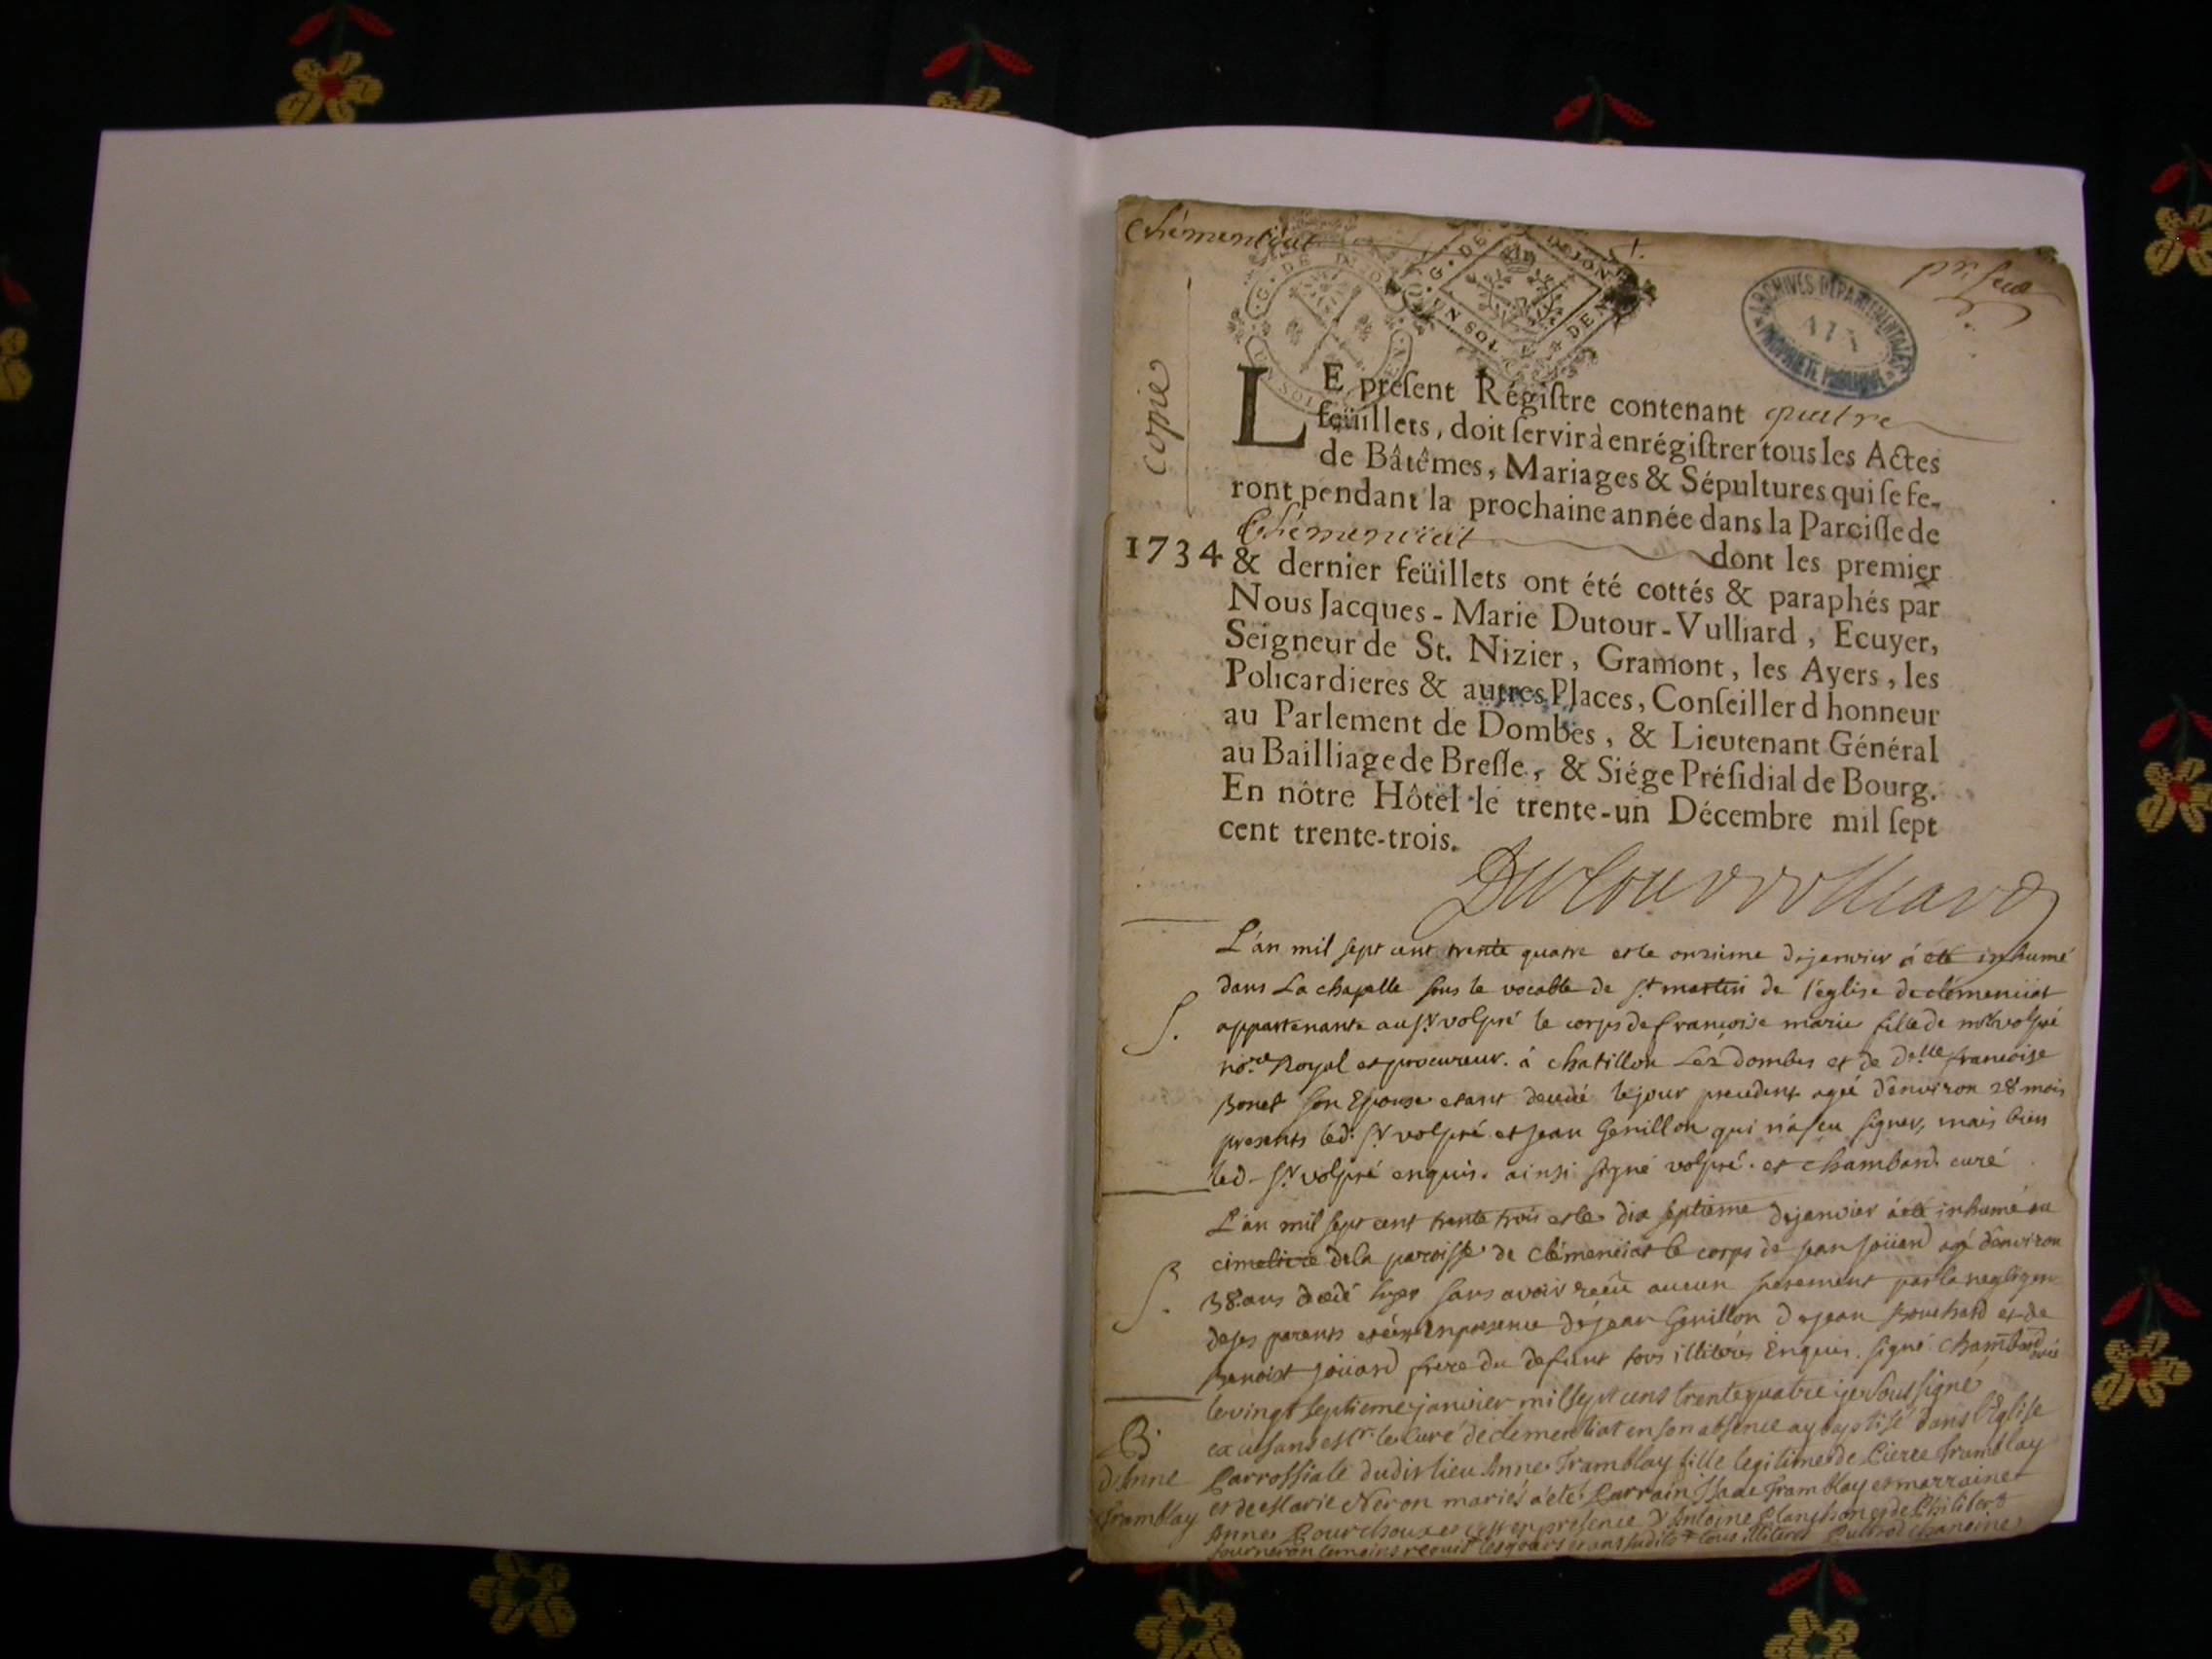 Clémentiat
G. DE DIJON
UN SOL
G. DE DIJON
UN SOL 4 DEN
ARCHIVES DEPARTEMENTALES
AIN
PROPRIÉTÉ PUBLIQUE
copie
LE preſent Régiſtre contenant quatre
feüillets, doit ſervir à enrégiſtrer tous les Actes
de Bâtêmes, Mariages & Sépultures qui ſe fe-
ront pendant la prochaine année dans la Paroiſſe de
Clémenciat dont les premier
1734 & dernier feüillets ont été cottés & paraphés par
Nous Jacques-Marie Dutour-Vulliard, Ecuyer,
Seigneur de St. Nizier, Gramont, les Ayers, les
Policardieres & autres Places, Conſeiller d honneur
au Parlement de Dombes, & Lieutenant Général
au Bailliage de Breſſe, & Siége Préſidial de Bourg.
En nôtre Hôtel le trente-un Décembre mil ſept
cent trente-trois.
Dutour vulliard
L'an mil sept cent trente quatre et le onzieme de janvier à été inhumé
dans La chapelle sous le vocable de St martin de l'église de clémenciat
S. appartenante au Sr volpré le corps de francoise marie fille de mr volpré
nore Royal et procureur à chatillon Lez dombes et de Delle francoise
Bonet son Epouse etant decedé le jour precedent ageé d'environ 28 mois
presents led. Sr volpré et jean Genillon qui n'a sçu signer, mais bien
led. Sr volpré enquis. ainsi signé volpré. et chambard curé
L'an mil sept cent trente trois et le dix septieme de janvier à été inhumé au
cimetiere de la paroisse de clémenciat le corps de jean joüard agé d'environ
S. 38 ans decedé hyer sans avoir reçu aucun sacrement par la negligen
de ses parents et ce en presence de jean Genillon de jean Bouchard et de
Benoist joüard frere du defunt tous illiterés Enquis. signé chambard curé
le vingt septieme janvier mil sept cens trente quatre je soussigné
B. en l'absence ay baptisé dans l'Eglise
d'Anne Parrossiale dudit lieu Anne Tramblay fille legitime de Pierre Tramblay
Tramblay et de Marie Neron mariés a été Parrain Tramblay et marraine
Anne Pourchoux et ce en presence d'Antoine Planchon et de Philibert
tourneron temoins requis les jours et ans susdits tous illiteres